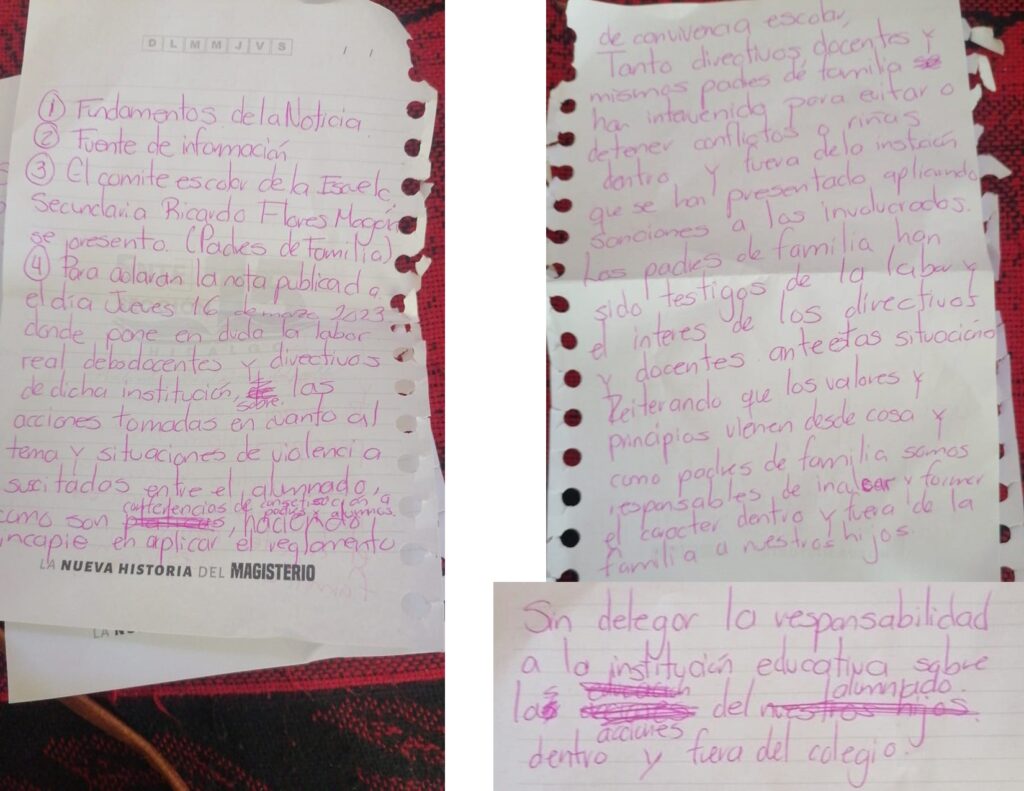 D L M M J V S / /
① Fundamentos de la Noticia
② Fuente de información
③ El comite escolar de la Escuela
Secundaria Ricardo Flores Magón
se presento. (Padres de familia)
④ Para aclaran la nota publicada
el día Jueves 16 de marzo 2023
donde pone en duda la labor
real de los docentes y directivos
de dicha institución, sobre las
acciones tomadas en cuanto al
tema y situaciones de violencia
suscitados entre el alumnado,
como son conferencias de concientización a padres y alumnos, haciendo
incapie en aplicar el reglamento
LA NUEVA HISTORIA DEL MAGISTERIO
LA
de convivencia escolar,
Tanto directivos, docentes y
mismos padres de familia
han intervenido para evitar o
detener conflictos o riñas
dentro y fuera de la
que se han presentado aplicando
sanciones a las involucrados.
Los padres de familia han
sido testigos de la labor y
el interes de los directivos
y docentes ante estas
Reiterando que los valores y
principios vienen desde casa y
como padres de familia somos
responsables de inculcar y formar
el caracter dentro y fuera de la
familia a nuestros hijos.
Sin delegar la responsabilidad
a la institución educativa sobre
las acciones del alumnado.
dentro y fuera del colegio.